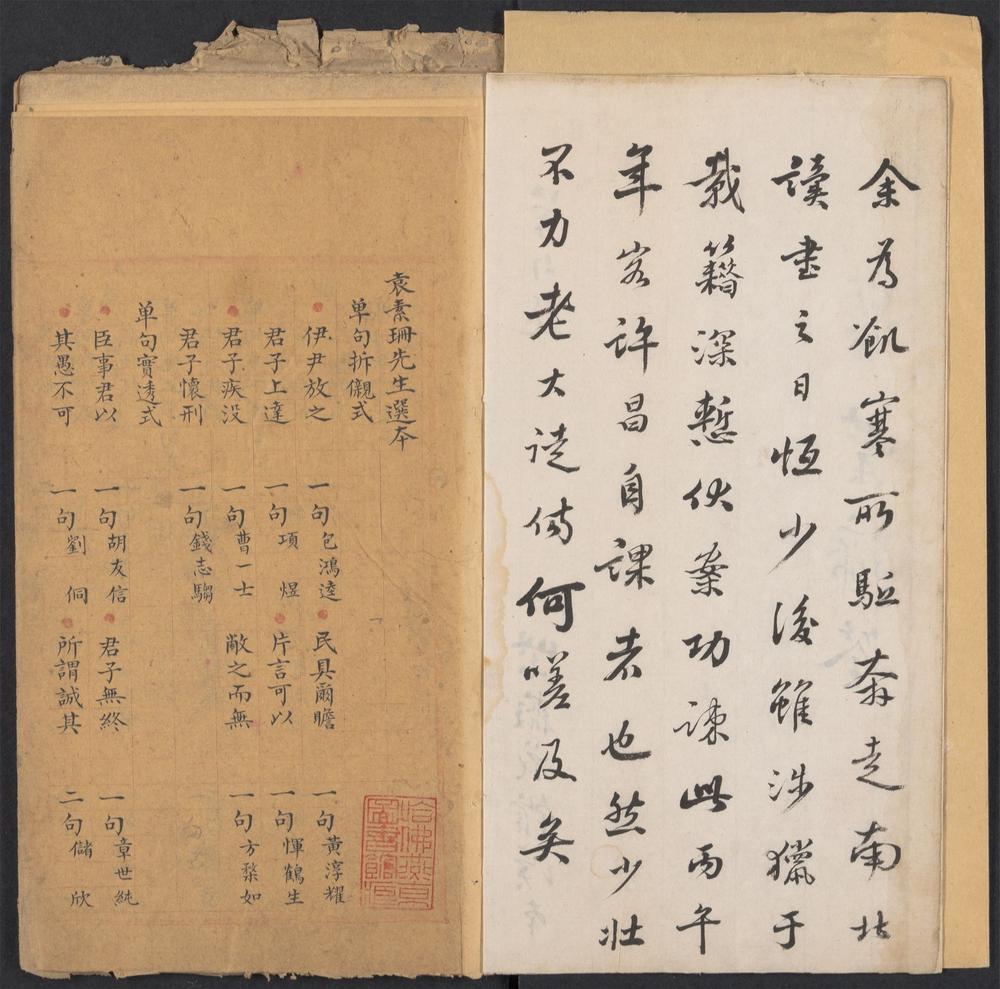 余為飢寒所駈奔走南北
讀書之日恒少後雖涉獵于
載籍深慙伏案功疎此丙午
年客許昌自課者也然少壯
不力老大徒傷何嗟及矣
袁素珊先生選本
单句拆儭式
伊尹放之 一句 包鴻逵 民具爾瞻 一句 黃淳耀
君子上達 一句 項煜 片言可以 一句 惲鶴生
君子疾没 一句 曹一士 敝之而無 一句 方楘如
君子懷刑 一句 錢志騶
单句實透式
臣事君以 一句 胡友信 君子無終 一句 章世純
其愚不可 一句 劉侗 所謂誠其 二句 儲欣
哈佛燕京
圖書館